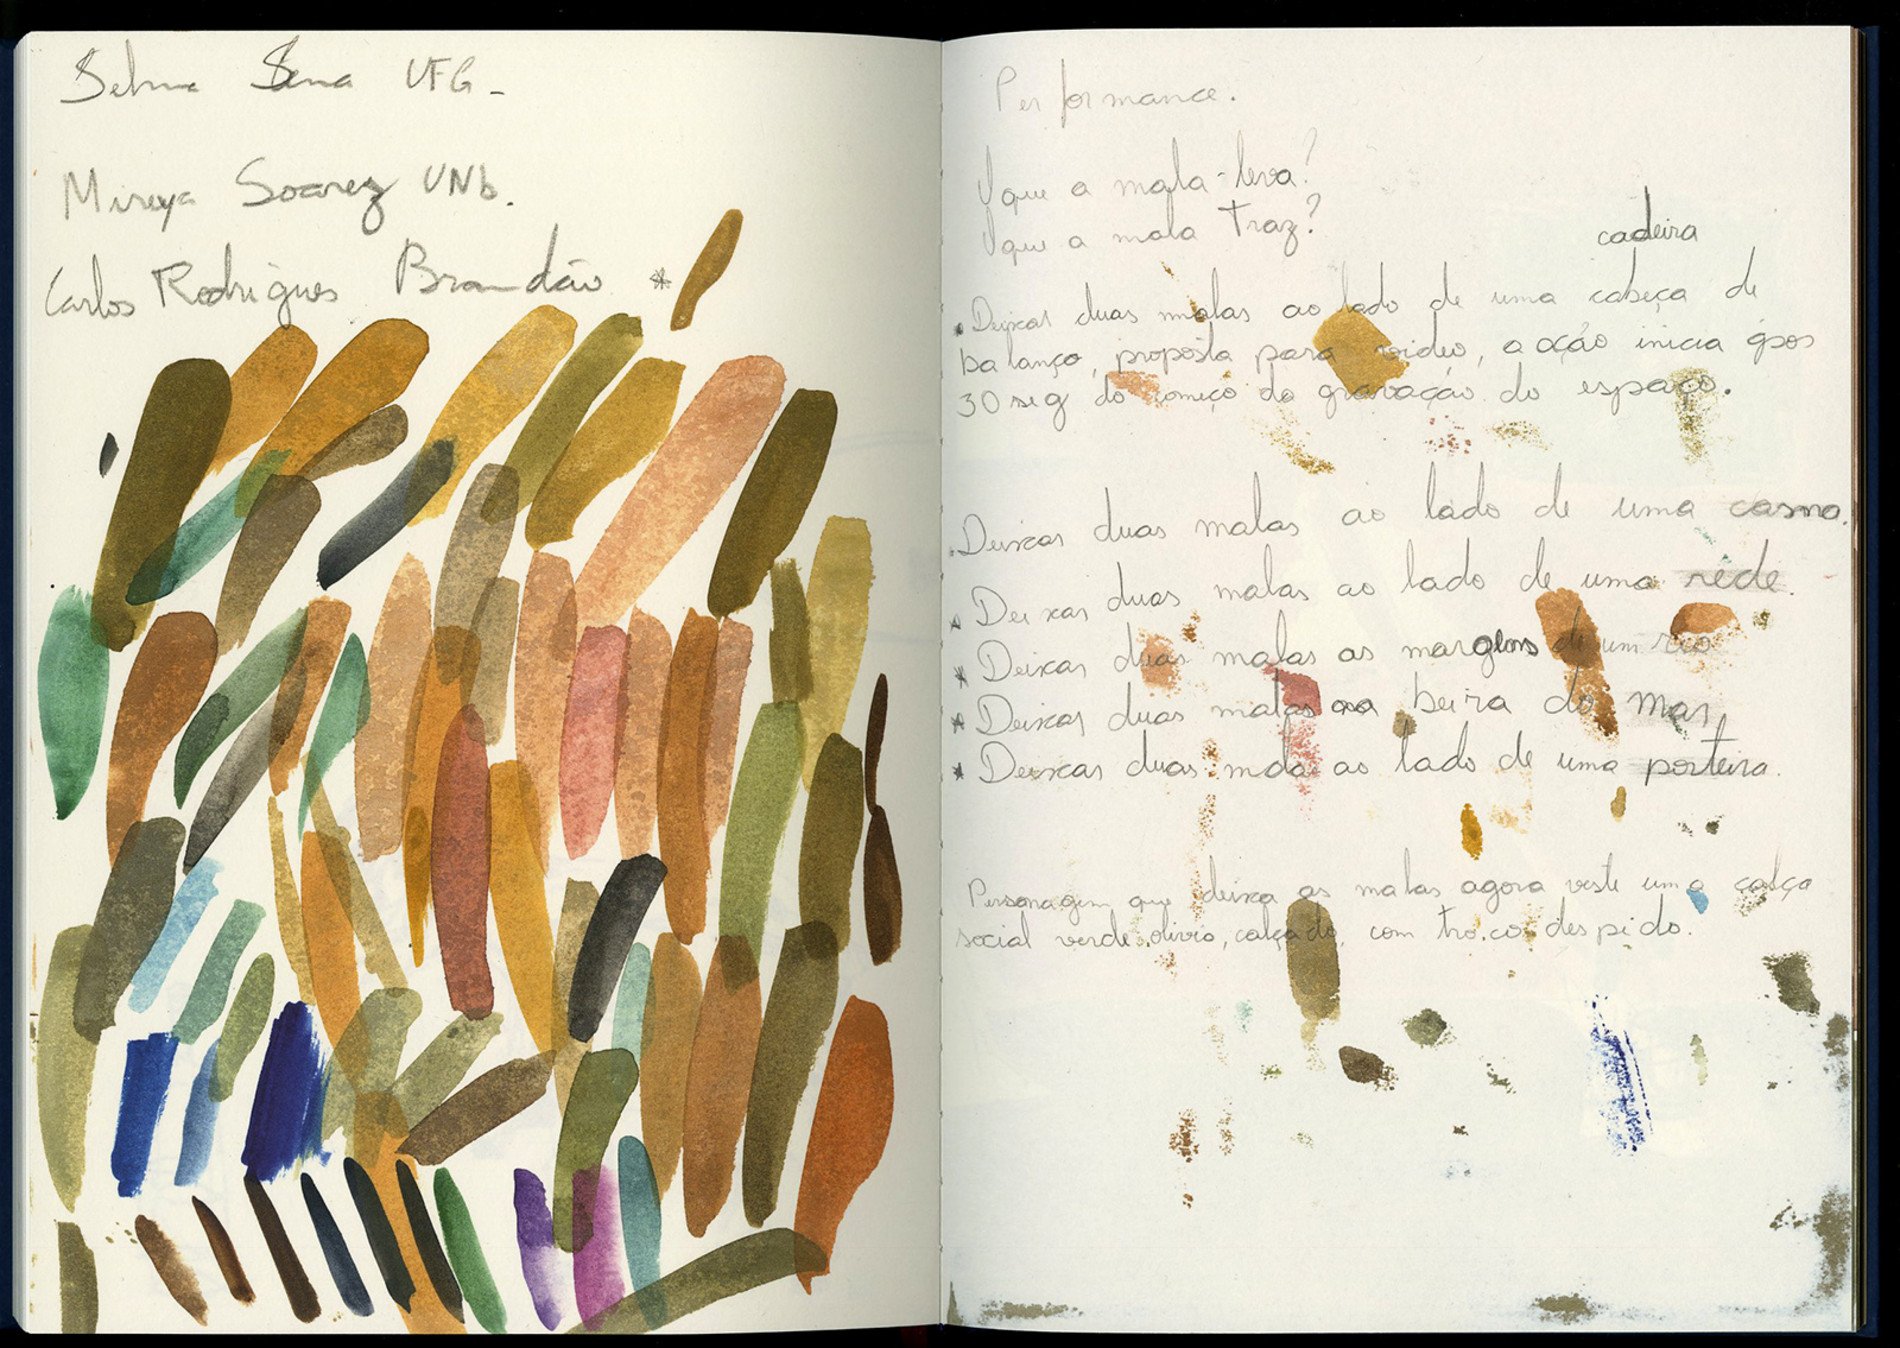 Selma Sena UFG -
Mireya Soarez UNb.
Carlos Rodrigues Brandão *
Performance.
O que a mala leva?
O que a mala traz?
cadeira
* Deixar duas malas ao lado de uma cabeça de
balanço, proposta para video, a ação inicia após
30 seg do começo da gravação do espaço.
. Deixar duas malas ao lado de uma casma.
* Deixar duas malas ao lado de uma rede.
* Deixar duas malas as margens de um rio
* Deixar duas malas na beira do mar
* Deixar duas malas ao lado de uma porteira.
Personagem que deixa as malas agora veste uma calça
social verde oliva, calçado, com tronco despido.